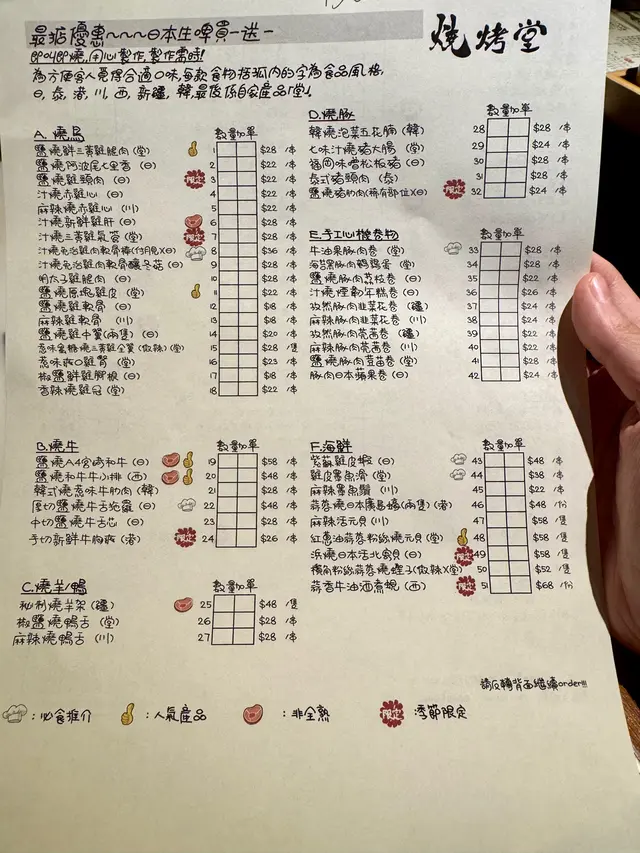 最抵優惠~~~日本生啤買一送一
燒烤堂
即叫即燒,用心製作,製作需時!
為方便客人覓得合適口味,每款食物括弧內的字為食品風格,
日,泰,港,川,西,新疆,韓,最後係自家產品「堂」
A. 燒鳥 數量 加單
鹽燒鮮三黃雞腿肉 (堂) 1 $28 /串
鹽燒阿波尾七里香 (日) 2 $22 /串
鹽燒雞頸肉 (日) 限定 3 $22 /串
汁燒赤雞心 (日) 4 $22 /串
麻辣燒赤雞心 (川) 5 $22 /串
汁燒新鮮雞肝 (日) 6 $28 /串
汁燒三黃雞氣管 (堂) 限定 7 $28 /串
汁燒免治雞肉軟骨棒(付月見)(日) 8 $36 /串
汁燒免治雞肉軟骨釀冬菇 (日) 9 $28 /串
明太子雞腿肉 (日) 10 $28 /串
鹽燒原塊雞皮 (堂) 11 $22 /串
鹽燒雞軟骨 (日) 12 $8 /串
麻辣雞軟骨 (川) 13 $8 /串
鹽燒雞中翼(兩隻) (日) 14 $20 /串
惹味蜜糖燒三黃雞全翼(微辣) (堂) 15 $28 /隻
惹味爽口雞腎 (堂) 16 $23 /串
椒鹽鮮雞腳根 (日) 17 $8 /串
香辣燒雞冠 (堂) 18 $22 /串
B. 燒牛 數量 加單
鹽燒A4宮崎和牛 (日) 19 $58 /串
鹽燒和牛牛小排 (西) 20 $48 /串
韓式燒惹味牛肋肉 (韓) 21 $28 /串
厚切鹽燒牛舌蛇籠 (日) 22 $48 /串
中切鹽燒牛舌芯 (日) 23 $28 /串
手切新鮮牛胸爽 (港) 限定 24 $26 /串
C. 燒羊/鴨 數量 加單
秘制燒羊架 (疆) 25 $48 /隻
椒鹽燒鴨舌 (堂) 26 $28 /串
麻辣燒鴨舌 (川) 27 $28 /串
D. 燒豚 數量 加單
韓燒泡菜五花腩 (韓) 28 $28 /串
七味汁燒豬大腸 (堂) 29 $24 /串
福岡味噌松板豬 (日) 30 $28 /串
泰式豬頸肉 (泰) 31 $28 /串
鹽燒豬肋肉(稀有部位)(日) 限定 32 $24 /串
E. 手工心機卷物 數量 加單
牛油果豚肉卷 (堂) 33 $28 /串
海苔豚肉鵪鶉蛋 (堂) 34 $28 /串
鹽燒豚肉荔枝卷 (日) 35 $28 /串
汁燒煙韌年糕卷 (日) 36 $26 /串
孜然豚肉韭菜花卷 (疆) 37 $24 /串
麻辣豚肉韭菜花卷 (川) 38 $24 /串
孜然豚肉茼蒿卷 (疆) 39 $22 /串
麻辣豚肉茼蒿卷 (川) 40 $22 /串
鹽燒豚肉荳苗卷 (堂) 41 $28 /串
豚肉日本蘋果卷 (日) 42 $24 /串
F. 海鮮 數量 加單
紫蘇雞皮蝦 (日) 43 $48 /串
雞皮墨魚滑 (堂) 44 $38 /串
麻辣墨魚鬚 (川) 45 $22 /串
蒜蓉燒日本廣島蠔(兩隻) (港) 46 $48 /份
麻辣活元貝 (川) 47 $58 /隻
紅蔥油蒜蓉粉絲燒元貝 (堂) 48 $58 /隻
浜燒日本活北寄貝 (日) 限定 49 $58 /隻
橫角粉絲蒜蓉燒蟶子(微辣)(日) 50 $52 /隻
蒜香牛油酒煮蜆 (西) 限定 51 $68 /份
請反轉背面繼續order!!!
:必食推介
:人氣產品
:非全熟
限定 :季節限定